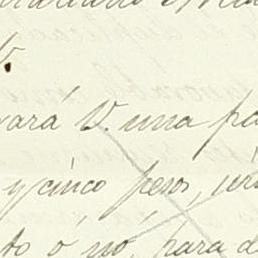 vará V. una pa
y cinco pesos, ver
to ó nó, para d